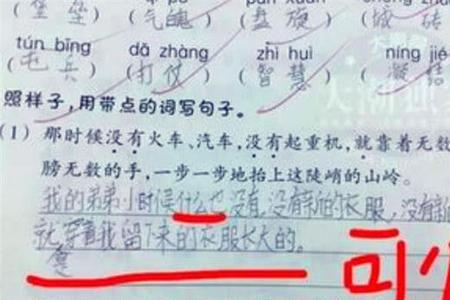 (堡垒) (气魄) (盘旋) (城砖)
tún bīng dǎ zhàng zhì huì níng jié
(屯兵) (打仗) (智慧) (凝结
照样子,用带点的词写句子。
(1) 那时候没有火车、汽车,没有起重机,就靠着无数
膀无数的手,一步一步地抬上这陡峭的山岭。
我的弟弟小时候什么也没有,没有新的衣服,没有新
就穿着我留下来的衣服长大的。